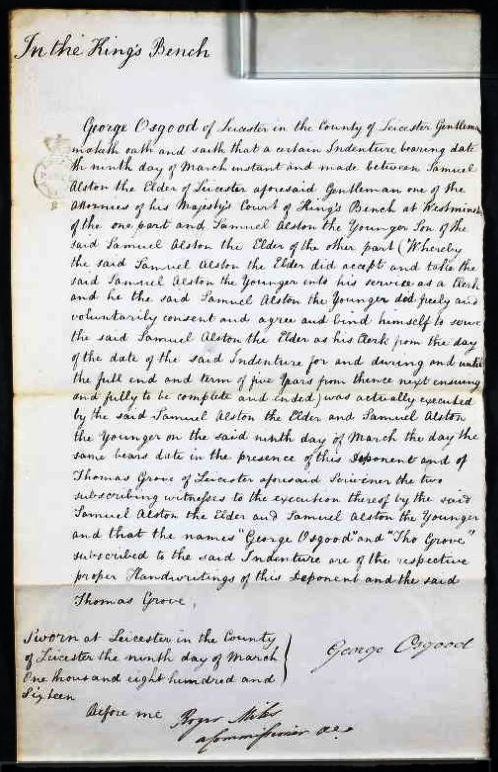 In the King's Bench
George Osgood of Leicester in the County of Leicester Gentleman
maketh oath and saith that a certain Indenture bearing date
th ninth day of March instant and made between Samuel
Alston the Elder of Leicester aforesaid Gentleman one of the
Attornies of his Majesty's Court of King's Bench at Westminster
of the one part and Samuel Alston the Younger Son of the
said Samuel Alston the Elder of the other part (Whereby
the said Samuel Alston the Elder did accept and take the
said Samuel Alston the Younger into his service as a Clerk
and he the said Samuel Alston the Younger did freely and
voluntarily consent and agree and bind himself to serve
the said Samuel Alston the Elder as his Clerk from the day
of the date of the said Indenture for and during and until
the full end and term of five Years from thence next ensuing
and fully to be complete and ended) was actually executed
by the said Samuel Alston the Elder and Samuel Alston
the Younger on the said ninth day of March the day the
same bears date in the presence of this Deponent and of
Thomas Grove of Leicester aforesaid Scrivener the two
subscribing witnesses to the execution thereof by the said
Samuel Alston the Elder and Samuel Alston the Younger
and that the names "George Osgood" and "Tho Grove"
subscribed to the said Indenture are of the respective
proper Handwritings of this Deponent and the said
Thomas Grove,
Sworn at Leicester in the County
of Leicester the ninth day of March
One thousand eight hundred and
Sixteen
George Osgood
Before me Roger Miles
a Commissioner &c